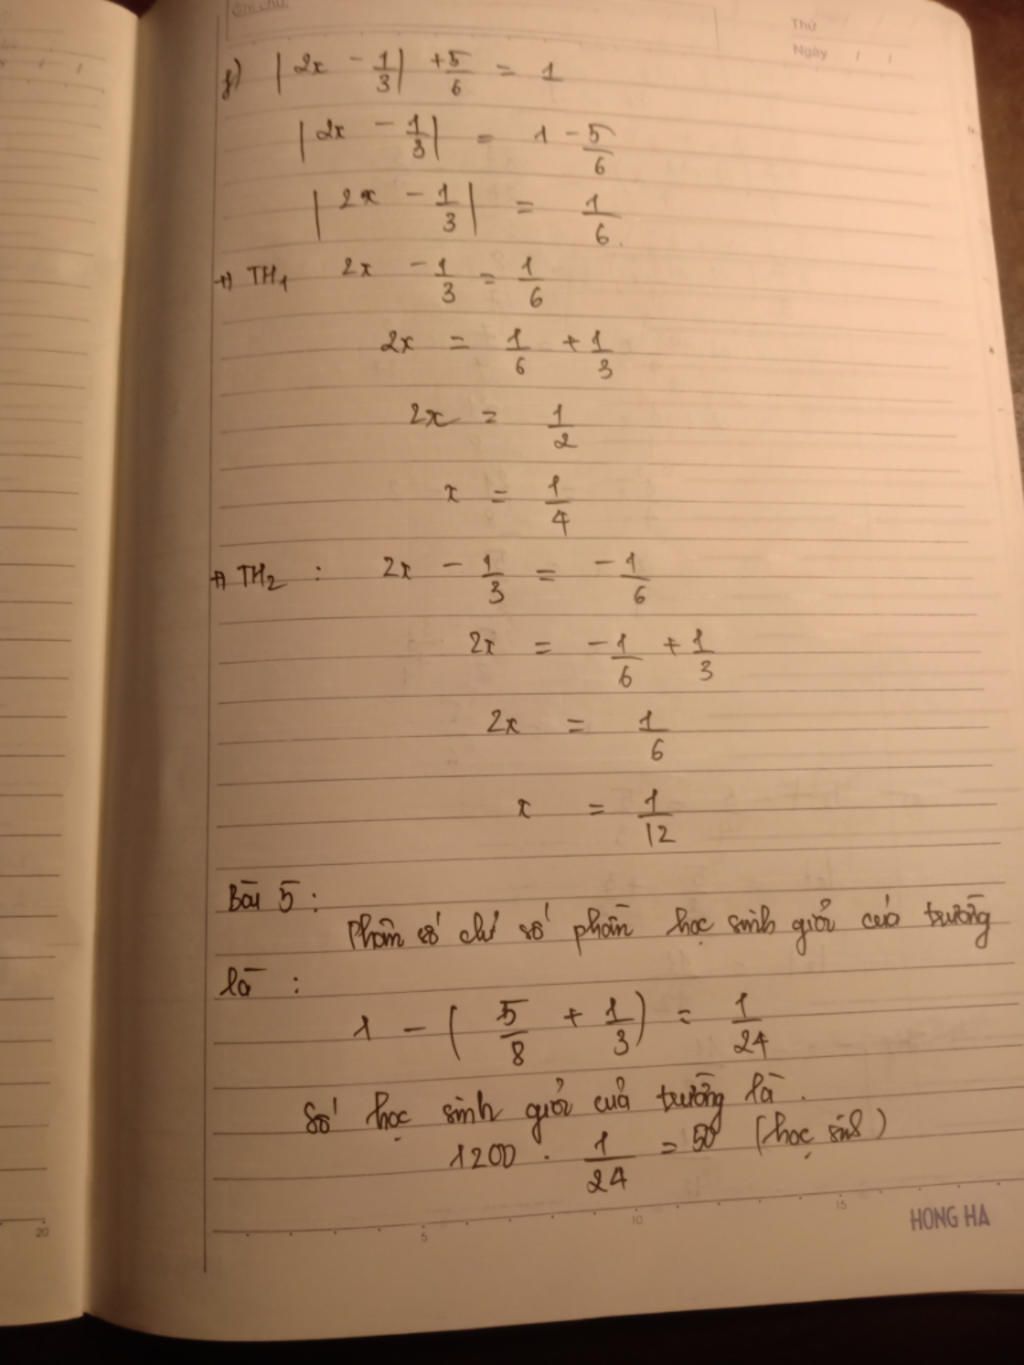 Ghi chú:
Thứ
Ngày / /
f) |2x - 1/3| + 5/6 = 1
|2x - 1/3| = 1 - 5/6
|2x - 1/3| = 1/6.
+) TH1 2x - 1/3 = 1/6
2x = 1/6 + 1/3
2x = 1/2
x = 1/4
+) TH2 : 2x - 1/3 = -1/6
2x = -1/6 + 1/3
2x = 1/6
x = 1/12
Bài 5 :
Phân số chỉ số phần học sinh giỏi của trường
là :
1 - (5/8 + 1/3) = 1/24
Số học sinh giỏi của trường là .
1200 . 1/24 = 50 (học sinh)
5 10 15
HONG HA
20